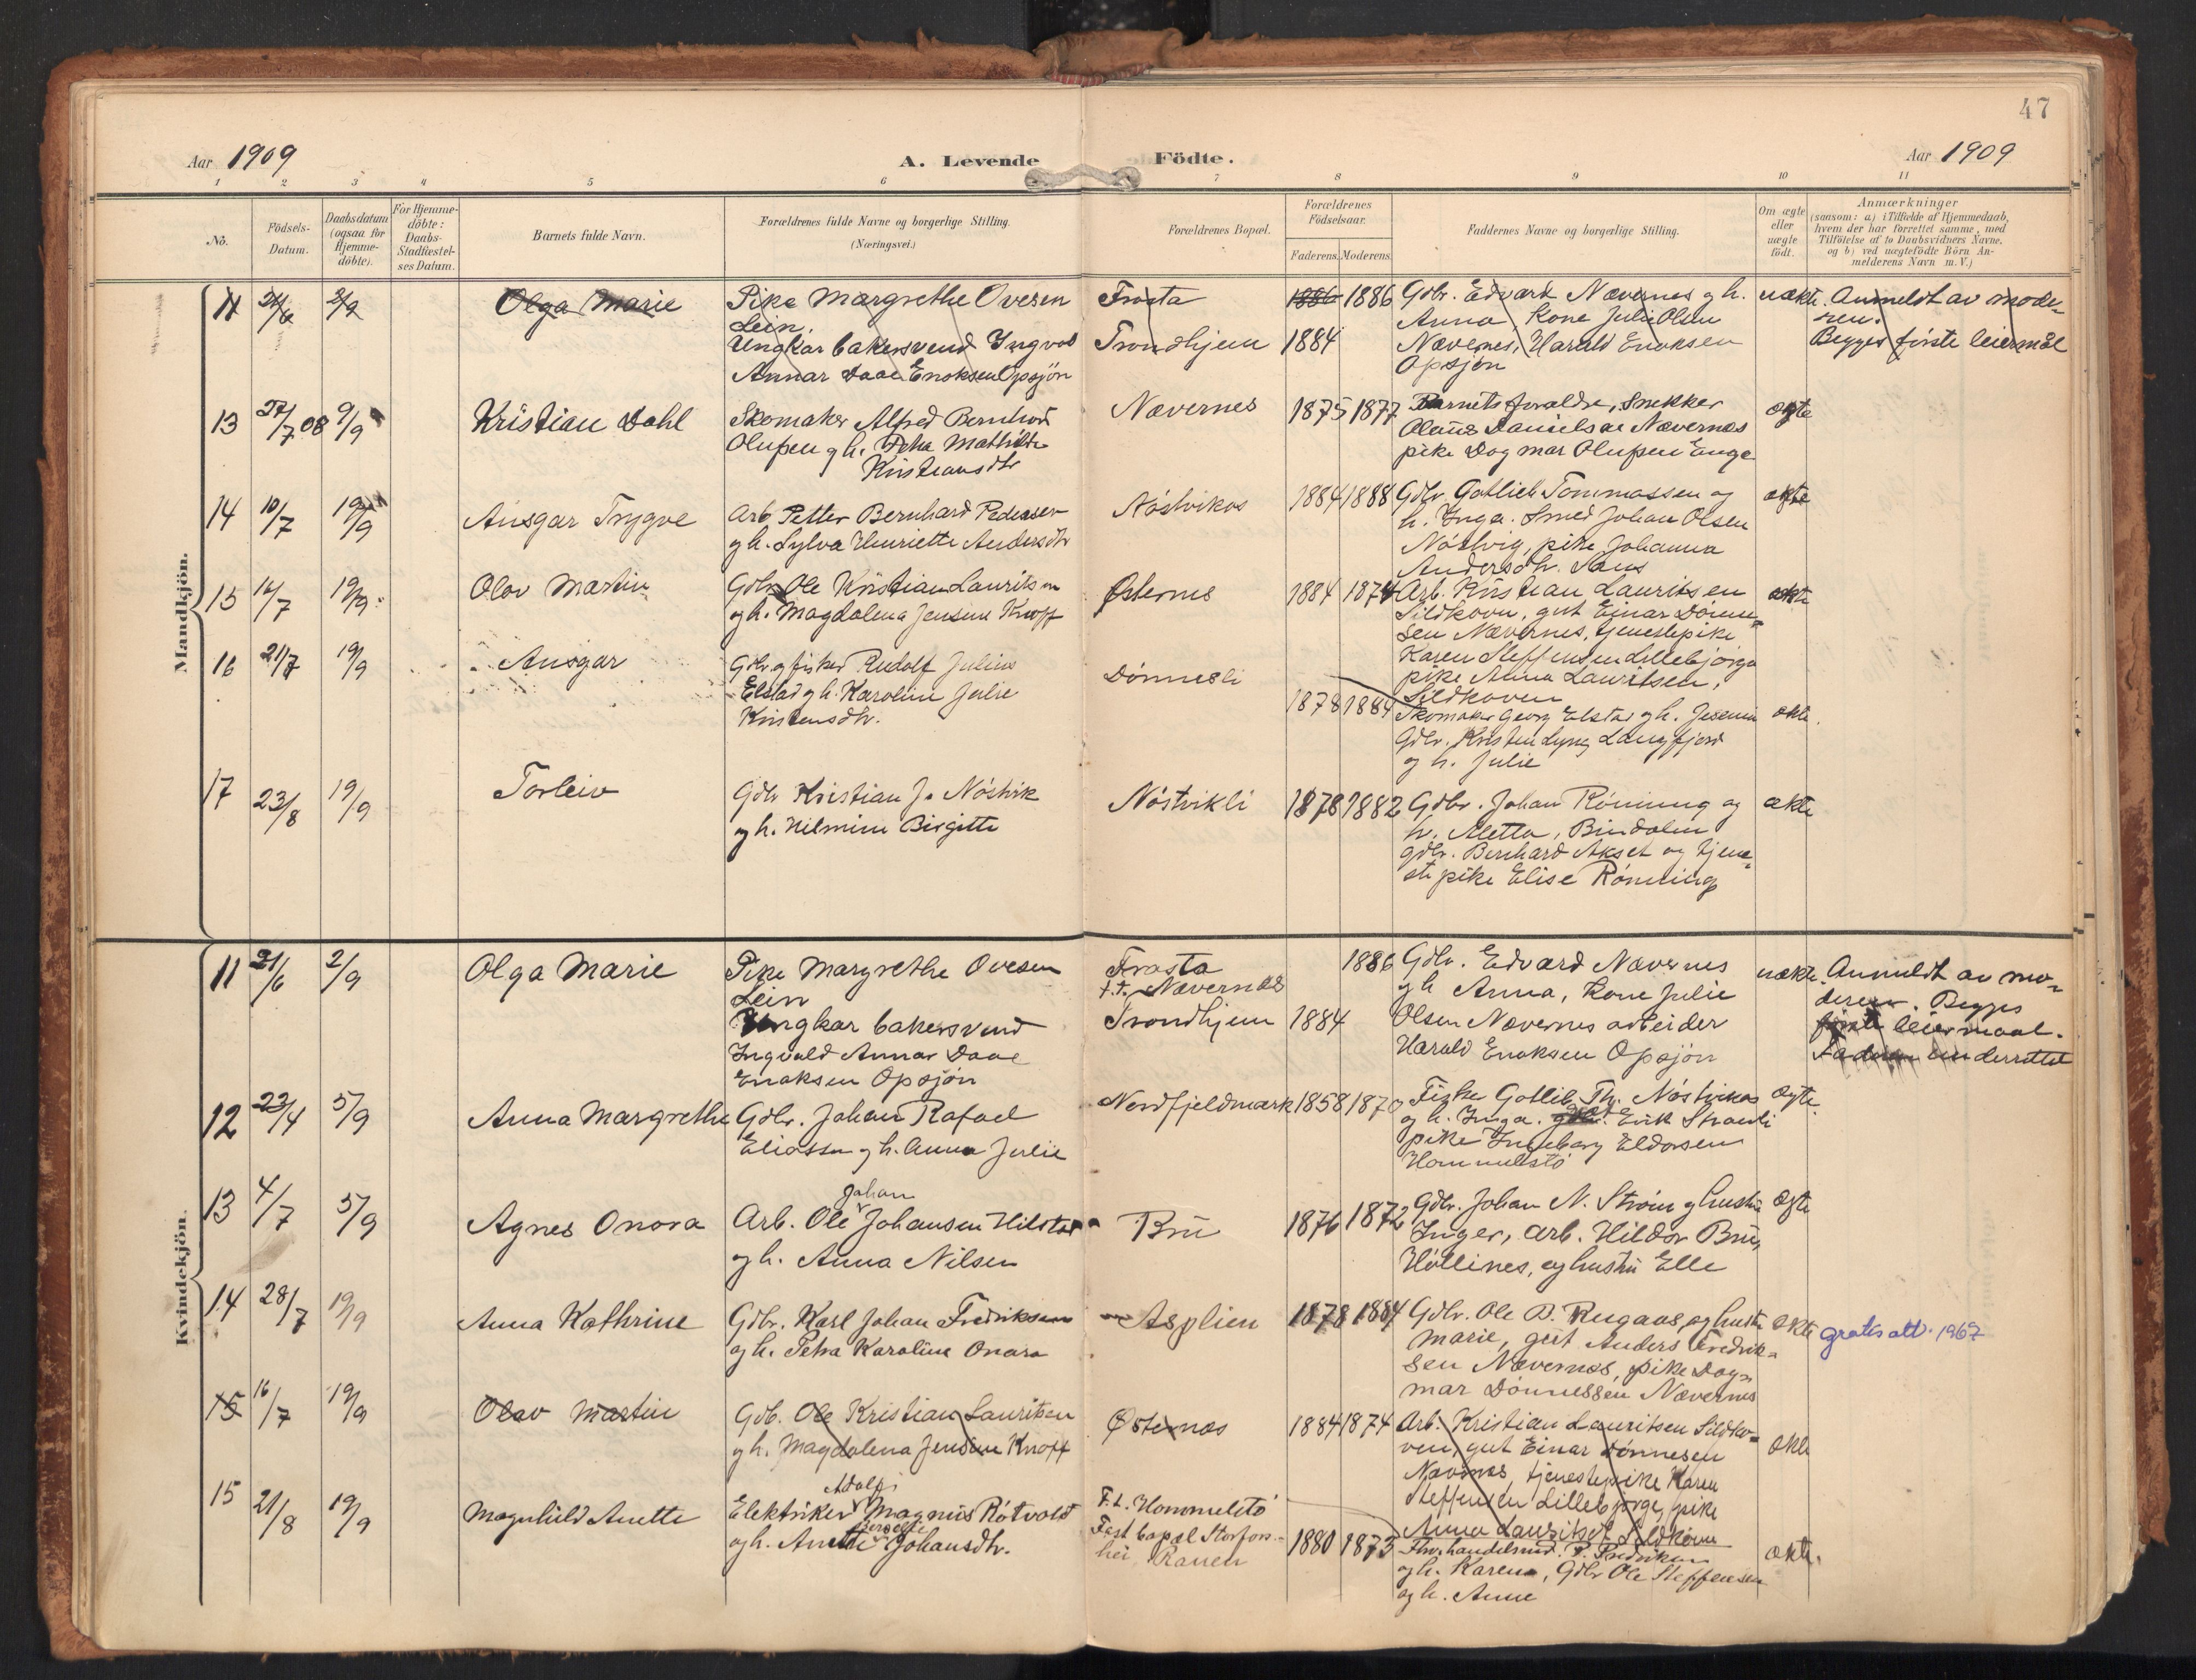 47
Aar 1909
A. Levende Födte.
Aar 1909
1 2 3 4 5 6 7 8 9 10 11
No.
Födsels-
Datum.
Daabsdatum
(ogsaa for
Hjemme-
döbte).
For Hjemme-
döbte:
Daabs-
Stadfæstel-
ses Datum.
Barnets fulde Navn.
Forældrenes fulde Navne og borgerlige Stilling.
(Næringsvei.)
Forældrenes Bopæl.
Forældrenes
Födselsaar.
Faderens. Moderens.
Faddernes Navne og borgerlige Stilling.
Om ægte
eller
uægte
födt.
Anmærkninger
(saasom: a) i Tilfælde af Hjemmedaab,
hvem der har forrettet samme, med
Tilföielse af to Daabsvidners Navne,
og b) ved uægtefödte Börn An-
melderens Navn m.V.)
Mandkjön.
11 21/6 2/9
Olga Marie
Pike Margrethe Ovesen
Lein.
Ungkar bakersvend Ingvald
Annar Daae Enoksen Opsjön
Frosta
Trondhjem
1886 1886
1884
Gdbr. Edvard Nævernes g h.
Anna, Kone Julie Olsen
Nævernes, Harald Enoksen
Opsjön
uækte.
Anmeldt av mode-
ren.
Begges förste leiermål
13 27/7 08 9/9
Kristian Dahl
Skomaker Alfred Bernhard
Olufsen g h. Petra Mathilde
Kristiansdtr
Nævernes
1875 1877
Barnets foraldre, Snekker
Olaus Danielsen Nævernes
pike Dagmar Olufsen Enge
ægte
14 10/7 19/9
Ansgar Trygve
Arb. Petter Bernhard Pedersen
g h. Sylva Henriette Andersdtr
Nöstvikos
1884 1888
Gdbr. Gotlieb Tommassen og
h. Inga. Smed Johan Olsen
Nöstvig, pike Johanna
Andersdtr. Saus
ækte
15 16/7 19/9
Olov Martin
Gdbr Ole Kristian Lauritsen
g h. Magdalena Jensine Knoff
Østernes
1884 1874
Arb. Kristian Lauritsen
Sildhovn, gut Einar Dönne-
sen Nævernes, tjenestepike
Karen Steffensen Lillebjörga
pike Anna Lauritsen,
Sildhoven
ækte
16 21/7 19/9
Ansgar
Gdbr. g fisker Rudolf Julius
Elstad g h. Karoline Julie
Kristensdtr.
Dönnesli
1878 1884
Skomaker Georg Elstad g h. Jesemine
Gdbr. Kristen Lyng Langfjord
og h. Julie
ækte.
17 23/8 19/9
Torleiv
Gdbr Kristian J. Nöstvik
og h. Hilmine Birgitte
Nöstvikli
1878 1882
Gdbr. Johan Rönning og
h. Aletta, Bindalen
gdbr. Bernhard Akset og tjene-
ste pike Elise Rönning
ækte
Kvindekjön.
11 21/6 2/9
Olga Marie
Pike Margrethe Ovesen
Lein
Ungkar bakersvend
Ingvald Annar Daae
Enoksen Opsjön
Frosta
f.t. Nævernes
Trondhjem
1886
1884
Gdbr. Edvard Nævernes
g h Anna, Kone Julie
Olsen Nævernes arbeider
Harald Enoksen Opsjön
uækte.
Anmeldt av mo-
deren. Begges
förste leiermaal.
Faderen underrettet
12 23/4 5/9
Anna Margrethe
Gdbr. Johan Rafael
Eliassen g h. Anna Julie
Nordfjeldmark
1858 1870
Fisker Gotlieb Th. Nöstvikos
og h. Inga. Erik Strauli
pike Ingeborg Eldorsen
Hommelstö
ægte.
13 4/7 5/9
Agnes Onora
Johan
Arb. Ole Johansen Hilstad
og h. Anna Nilsen
Brü
1876 1872
Gdbr. Johan N. Ström g hustru
Inger, arb. Hildor Brü,
Höllines, og hustru Elle
ægte
14 28/7 19/9
Anna Kathrine
Gdbr. Karl Johan Fredriksen
og h. Petra Karoline Onara
Asplien
1878 1884
Gdbr. Ole B. Rugaas, og hustru
Marie, gut Anders Fredrik-
sen Nævernes, pike Dag-
mar Dönnessen Nævernes
ækte
gratis att. 1967
15 16/7 19/9
Olav Martin
Gdb. Ole Kristian Lauritsen
g h. Magdalena Jensine Knoff
Østernæs
1884 1874
Arb. Kristian Lauritsen Sildho-
ven, gut Einar Dönnesen
Nævernes, tjenestepike Karen
Steffensen Lillebjörge, pike
Anna Lauritsen Sildhoven
ækte
15 21/8 19/9
Magnhild Anette
Adolf
Elektriker Magnus Rötvold
og h. Anette Johansdtr.
F.t. Hommelstö
Fast bopæl Storfors-
hei, Ranen
1880 1873
Fhv. handelsmd. P. Fredriksen
og h. Karen, Gdbr Ole Steffensen
og h. Anne
ækte.